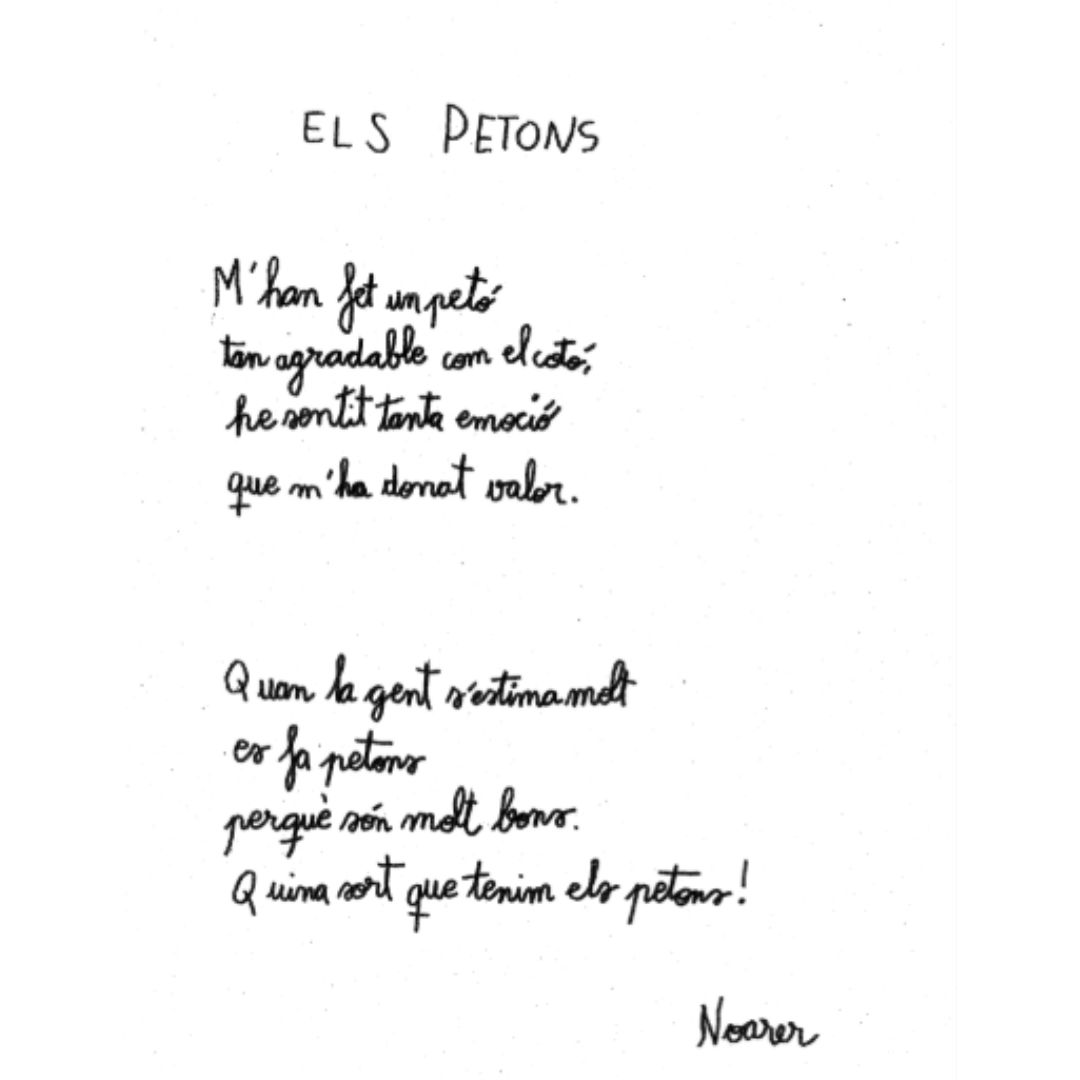 ELS PETONS
M'han fet un petó
tan agradable com el cotó;
he sentit tanta emoció
que m'ha donat valor.
Quan la gent s'estima molt
es fa petons
perquè són molt bons.
Quina sort que tenim els petons!